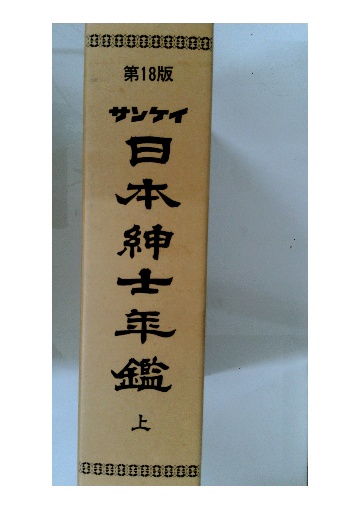 第18版
サンケイ
日本紳士年鑑
上